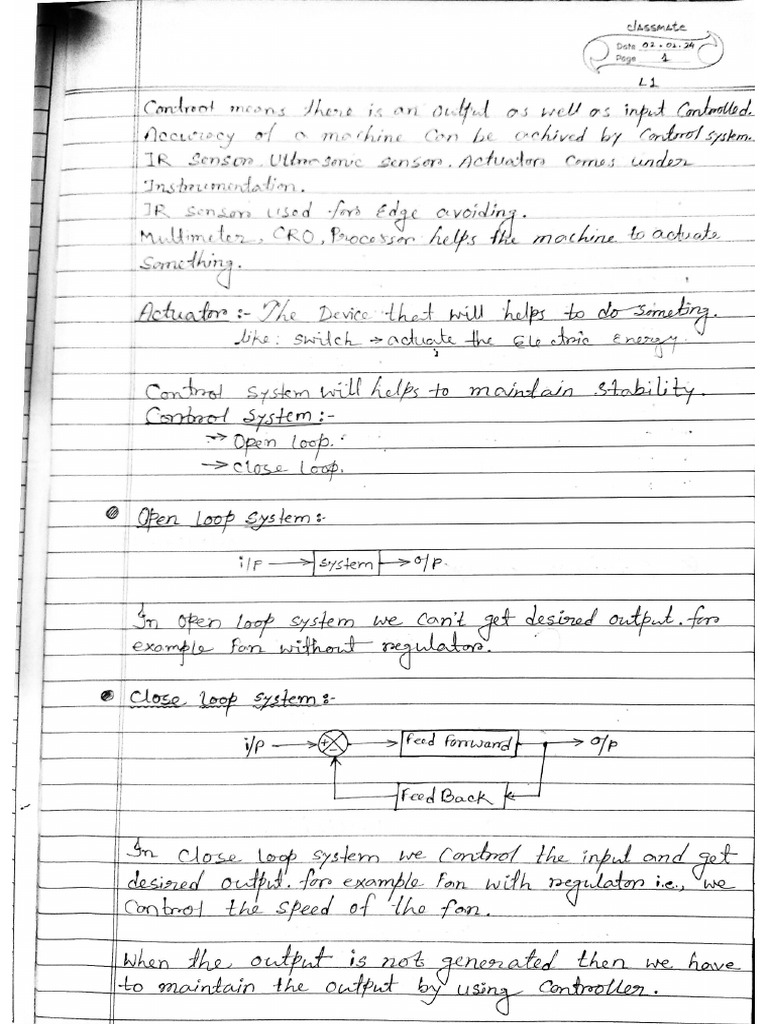 classmate
Date 02.01.24
Page 1
L1
Control means there is an output as well as input Controlled.
Accuracy of a machine Can be achived by Control system.
IR sensor, Ultrasonic sensor, Actuators comes under
Instrumentation.
IR sensor used for Edge avoiding.
Multimeter, CRO, Processor helps the machine to actuate
something.
Actuator :- The Device that will helps to do someting.
like: switch → actuate the Electric Energy.
Control system will helps to maintain stability.
Control System :-
→ Open loop.
→ close loop.
Open Loop System :-
i/p → system → o/p.
In open loop system we can't get desired output. for
example Fan without regulator.
Close loop system :-
i/p → + - → Feed Forward → o/p
Feed Back
In close loop system we control the input and get
desired output. for example Fan with regulator i.e., we
control the speed of the fan.
When the output is not generated then we have
to maintain the output by using controller.